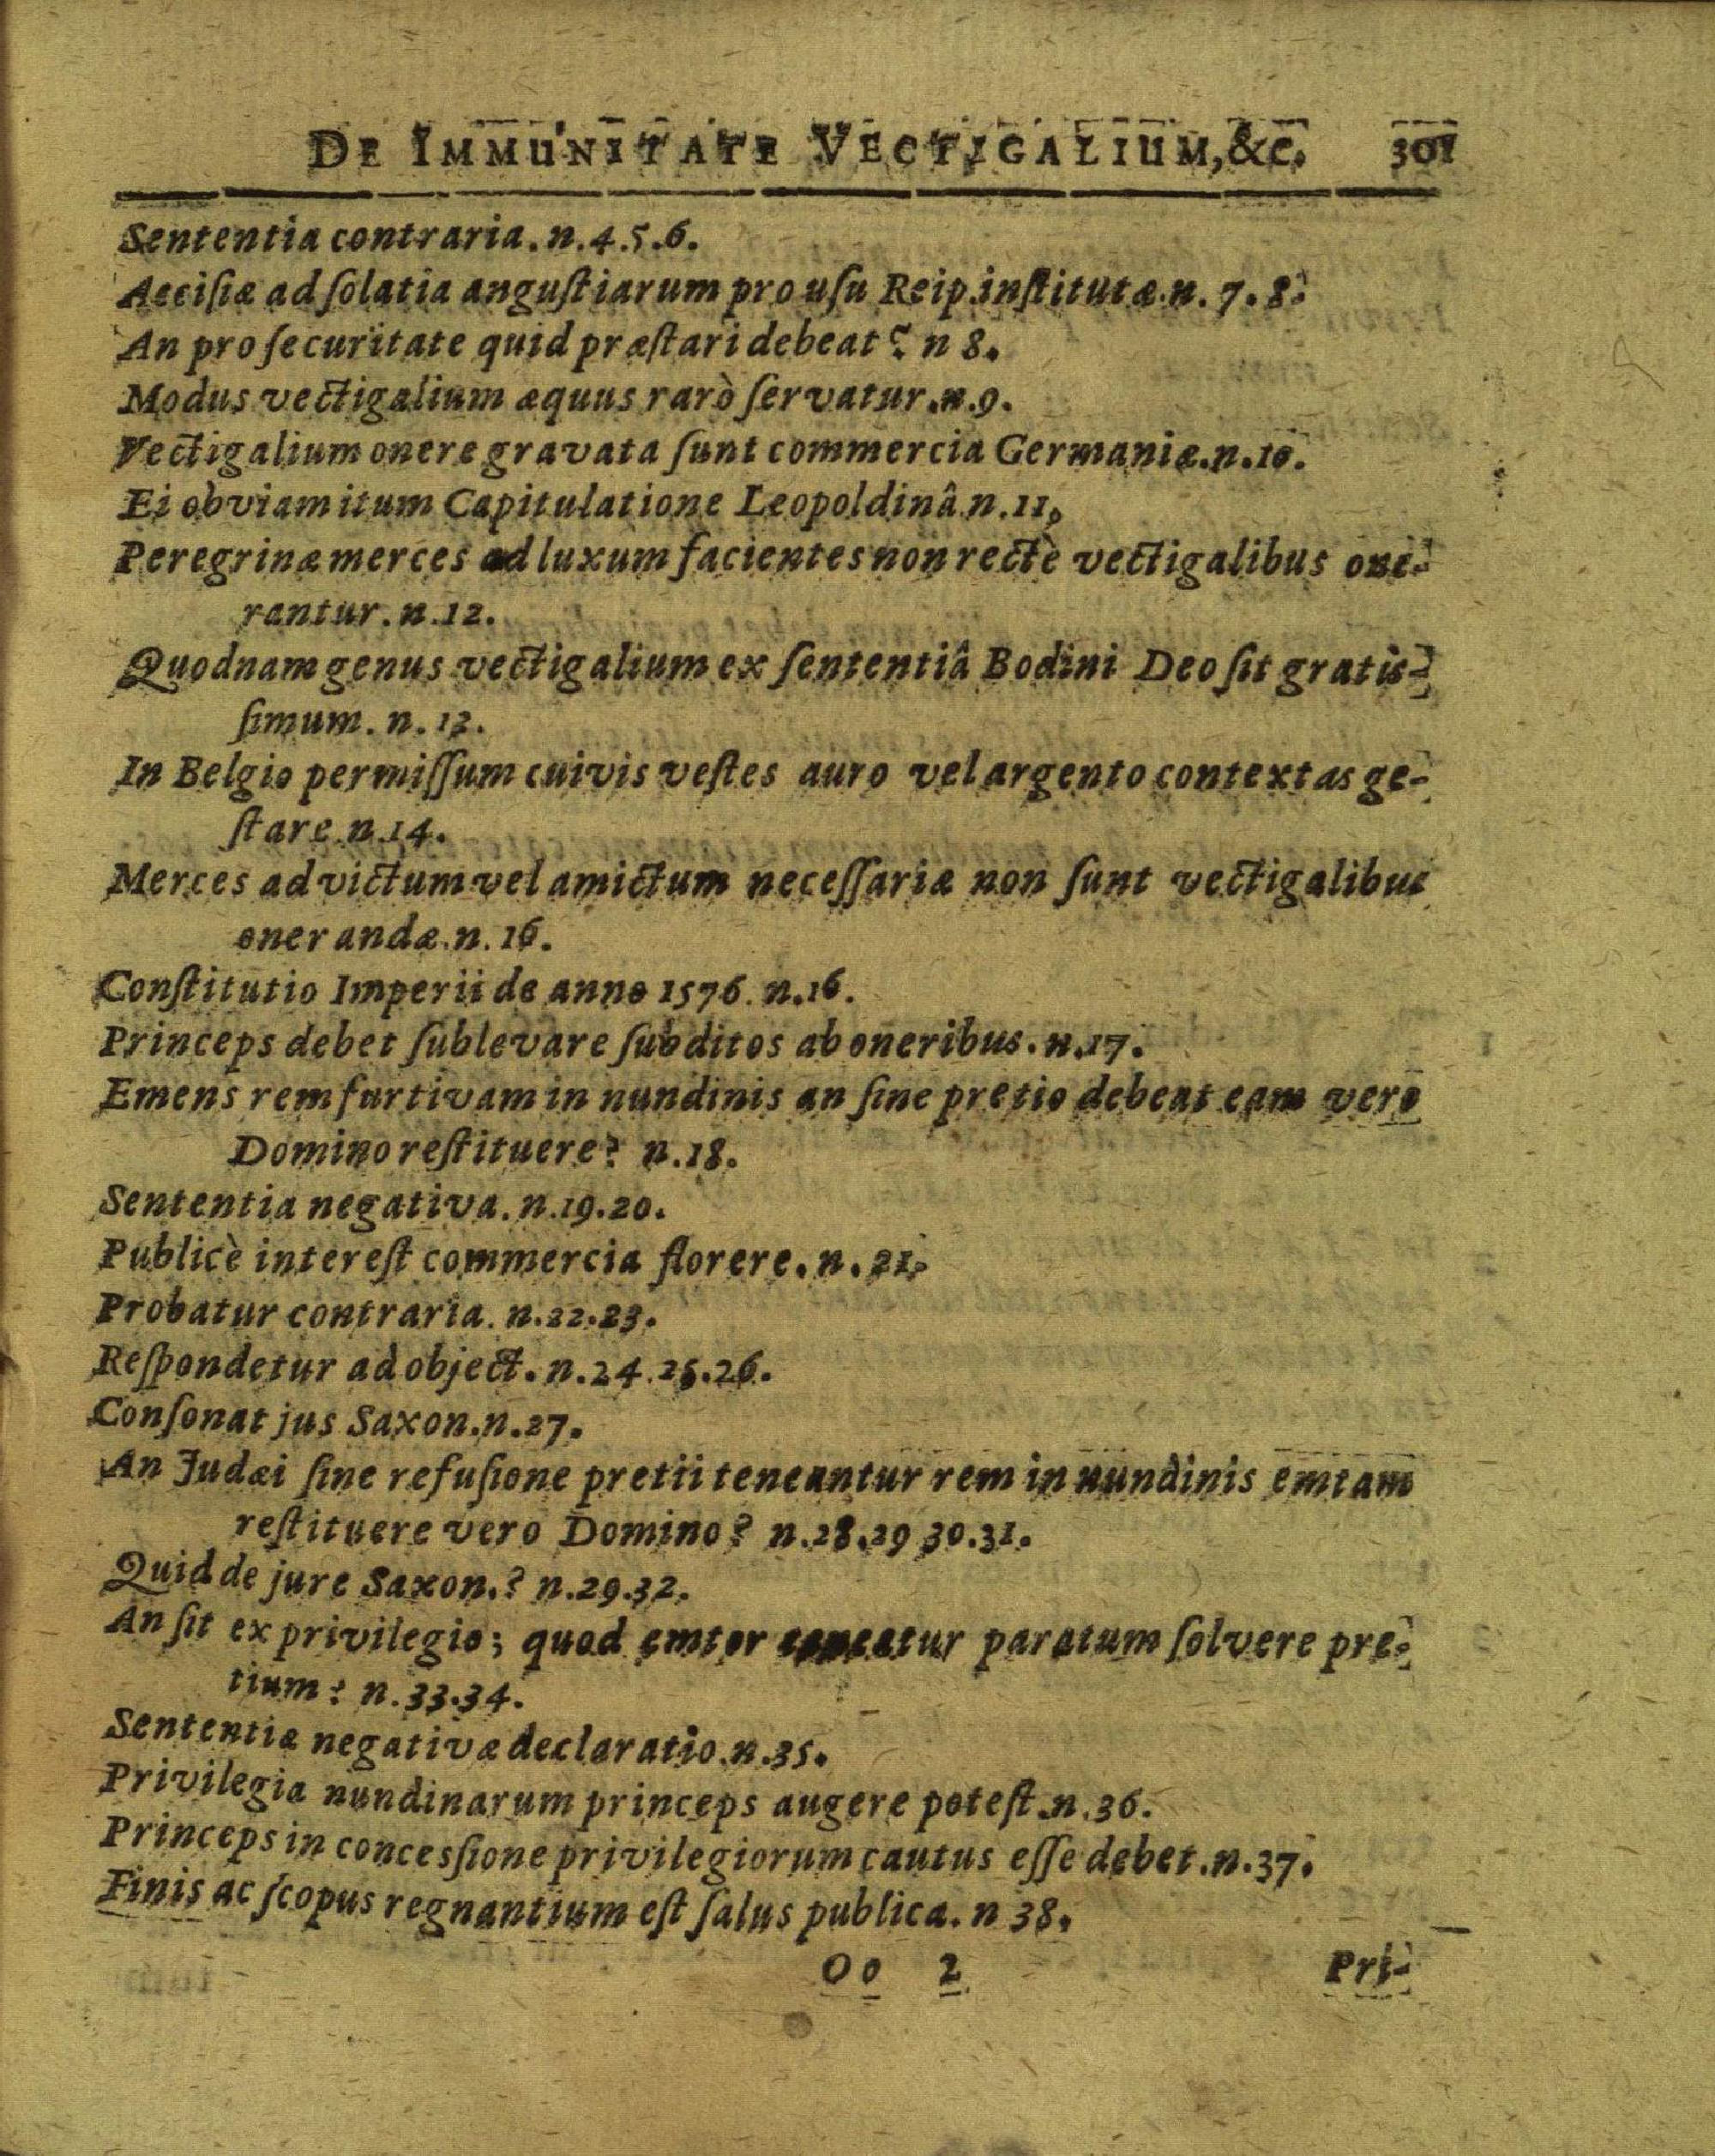 DE IMMUNITATE VECTIGALIUM, &c. 301
Sententia contraria. n.4.5.6.
Accisiæ ad ſolatia anguſtiarum pro uſu Reip. inſtitutæ. n. 7. 8.
An pro ſecuritate quid præſtari debeat? n 8.
Modus vectigalium æquus rarò ſervatur. n.9.
Vectigalium onere gravata ſunt commercia Germaniæ. n.10.
Ei obviam itum Capitulatione Leopoldinâ n.11.
Peregrinæ merces ad luxum facientes non rectè vectigalibus one-
rantur. n.12.
Quodnam genus vectigalium ex ſententiâ Bodini Deo ſit gratis-
ſimum. n. 13.
In Belgio permiſſum cuivis veſtes auro vel argento contextas ge-
ſtare n.14.
Merces ad victum vel amictum neceſſariæ non ſunt vectigalibus
onerandæ. n. 16.
Conſtitutio Imperii de anno 1576. n.16.
Princeps debet ſublevare ſubditos ab oneribus. n.17.
Emens rem furtivam in nundinis an ſine pretio debeat eam vero
Domino reſtituere? n.18.
Sententia negativa. n.19.20.
Publicè intereſt commercia florere. n. 21.
Probatur contraria. n.22.23.
Reſpondetur ad object. n.24.25.26.
Conſonat jus Saxon. n.27.
An Judæi ſine refuſione pretii teneantur rem in nundinis emtam
reſtituere vero Domino? n.28.29 30.31.
Quid de jure Saxon.? n.29.32.
An ſit ex privilegio; quod emtor teneatur paratum ſolvere pre-
tium? n.33.34.
Sententiæ negativæ declaratio. n.35.
Privilegia nundinarum princeps augere poteſt. n.36.
Princeps in conceſſione privilegiorum cautus eſſe debet. n.37.
Finis ac ſcopus regnantium eſt ſalus publica. n 38.
Oo 2 Pri-